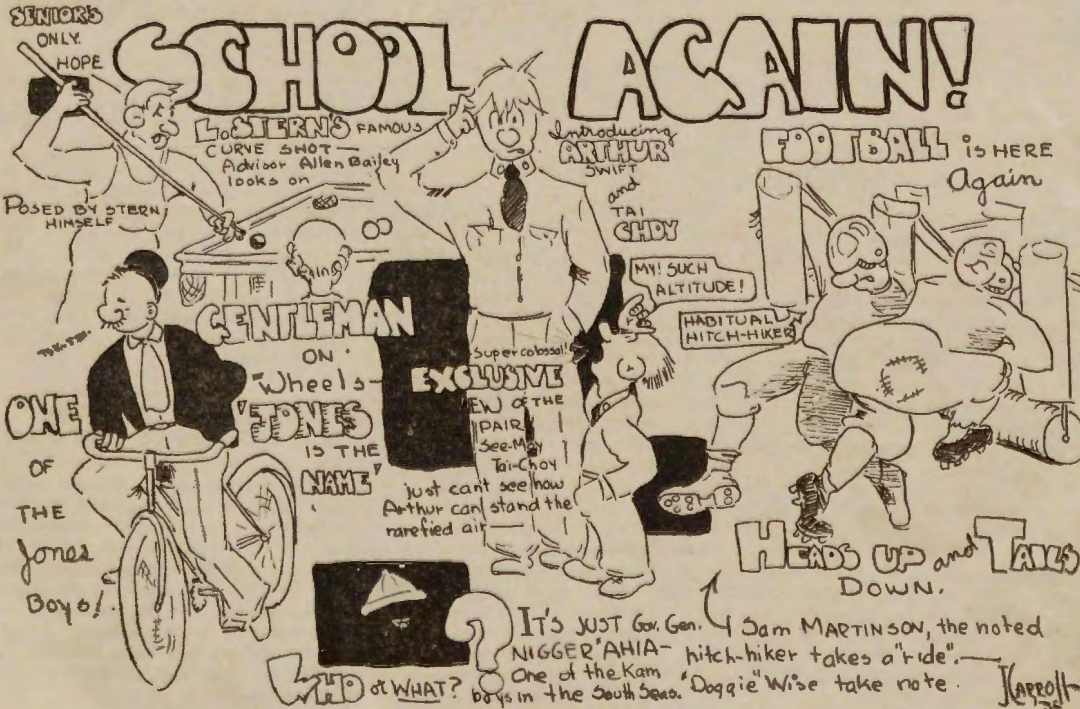 SENIOR'S
ONLY
HOPE
SCHOOL AGAIN!
L. STERN'S FAMOUS
CURVE SHOT—
Advisor Allen Bailey
looks on
POSED BY STERN
HIMSELF
Introducing
ARTHUR
SWIFT
and
TAI
CHOY
FOOTBALL is HERE
Again
MY! SUCH
ALTITUDE!
HABITUAL
HITCH-HIKER
GENTLEMAN
ON
"Wheels—
'JONES
IS THE
NAME'
ONE
OF
THE
Jones
Boys!
Supercolossal!
EXCLUSIVE
EW OF THE
PAIR
See-May
Tai-Choy
just can't see how
Arthur can stand the
rarefied air—
HEADS UP and TAILS
DOWN.
WHO or WHAT?
?
IT'S JUST Gov. Gen.
NIGGER "AHIA—
One of the Kam
boys in the South Seas.
Sam MARTINSON, the noted
hitch-hiker takes a "ride".—
"Doggie" Wise take note.